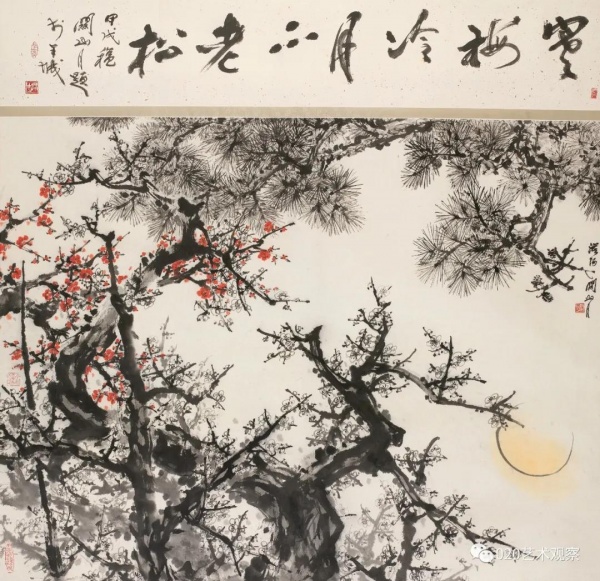 寒梅冷月不老松
甲戌穐
關山月題
於羊城
漠陽關山月
020艺术观察